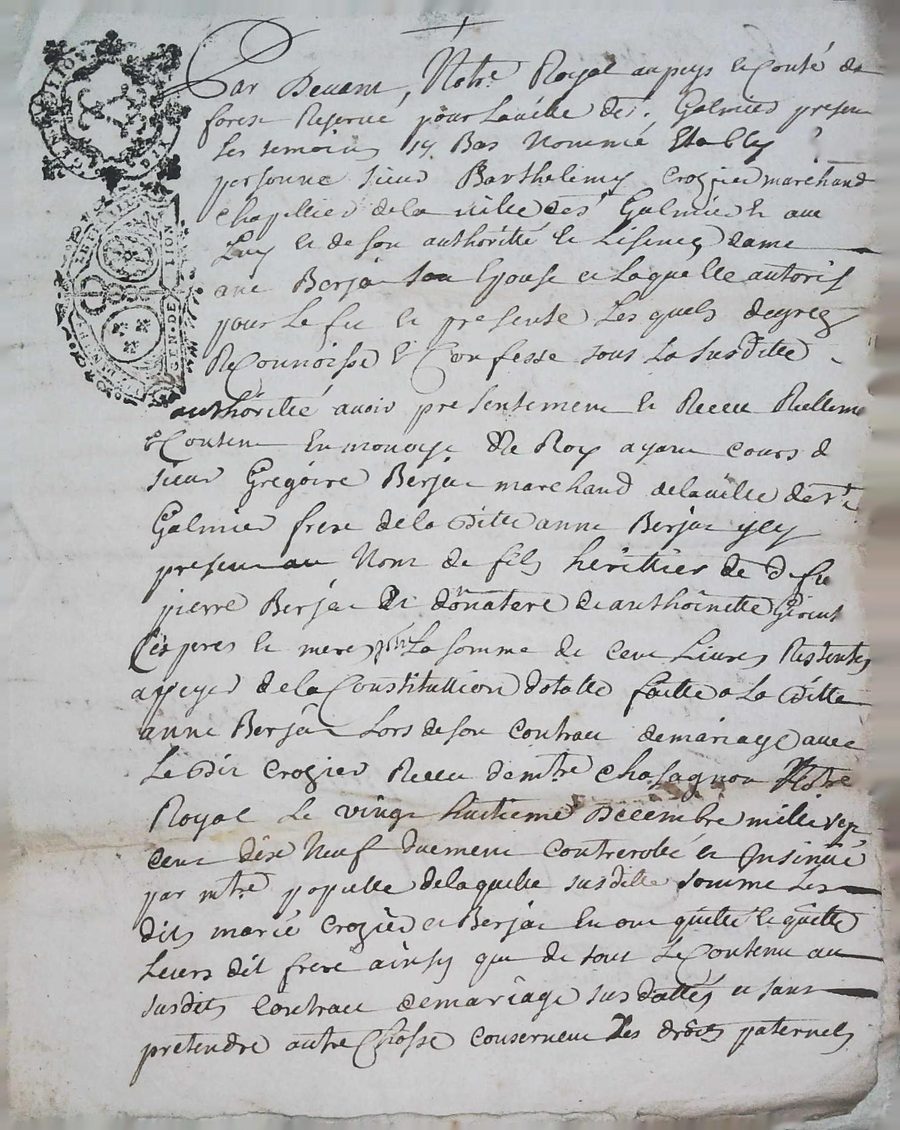 Par Devant, Notre Royal au pays et Conté de
forest Reservé pour la ville de st. Galmier presen
Les temoins Bas Nommé Etably
personne sieur Barthelemy Crozier marchand
chapellier de la ville de st Galmier et ave
Luy et de son authoritté et Lisence dame
ane Berjac son Epouse et Laquelle autoris
pour Le fie et presente Lesquels de gré
Reconnoisse et Confesse sous La susditte
authoritté avoir presentement et Receu Rellem
Contan En monoye de Roy ayant cours d
sieur Grégoire Berjac marchand de la ville de st
Galmier frere de la ditte anne Berjac ycy
present au Nom de fils hérittier de d feu
pierre Berjac Et donatere de anthoinette
ses pere et mere La somme de Cent Livres Restentes
a payer de la Constitution dotalle faitte a La ditte
anne Berjac Lors de son contrac de mariage avec
Le dit Crozier Receu de mtre Chasagnon Notre
Royal Le vingt huitieme Decembre mille sep
cent dixe Neuf duement controrolé et Insinué
par mtre populle de laquelle susditte somme Les
dits marié Crozier et Berjac En ont quitté et quitte
Leurs dit frere ainsy que de tout Le Contenu au
susdits contrac de mariage susdattés et sans
pretendre autre Chosse consernent Les droits paternels
GENERALITE DE LION
GEN. DE LION